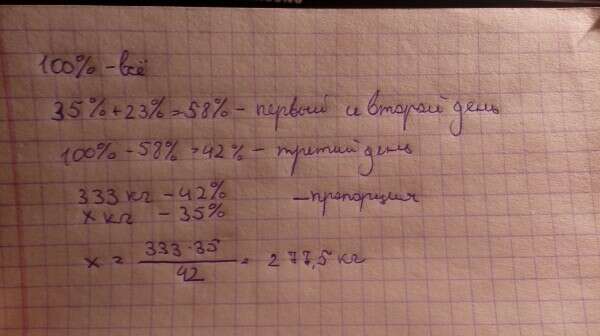 100% - всё
35% + 23% = 58% - первый и второй день
100% - 58% = 42% - третий день
333 кг - 42% - пропорция
x кг - 35%
x = 333·35/42 = 277,5 кг